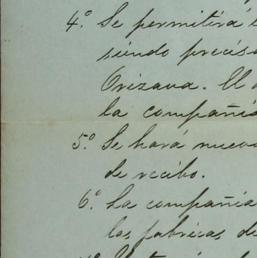 4.º Se permitirá
siendo preciso
Orizava. El
la compañía
5.º Se hará nueva
de recibo.
6.º La compañía
las fabricas de